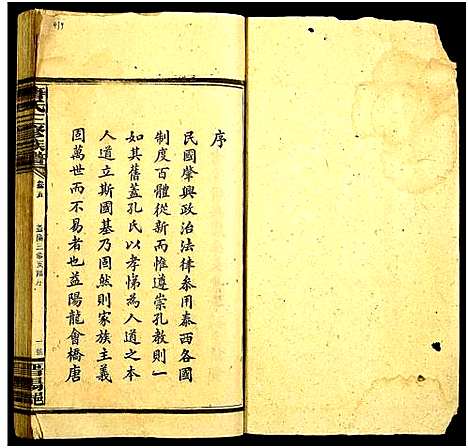 序
民國肇興政治法律叅用泰西各國
制度百體從新而惟遵崇孔教則一
如其舊蓋孔氏以孝悌為人道之本
人道立斯國基乃固然則家族主義
固萬世而不易者也益陽龍會橋唐
唐氏三修族譜
卷五